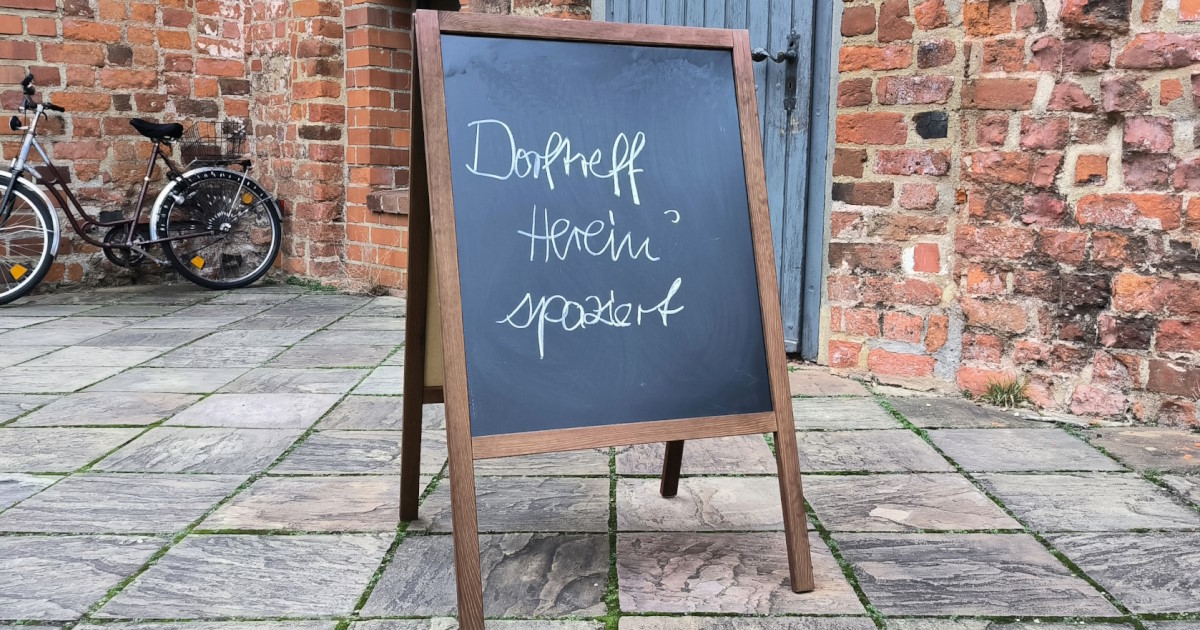 Dorftreff
Herein
spaziert